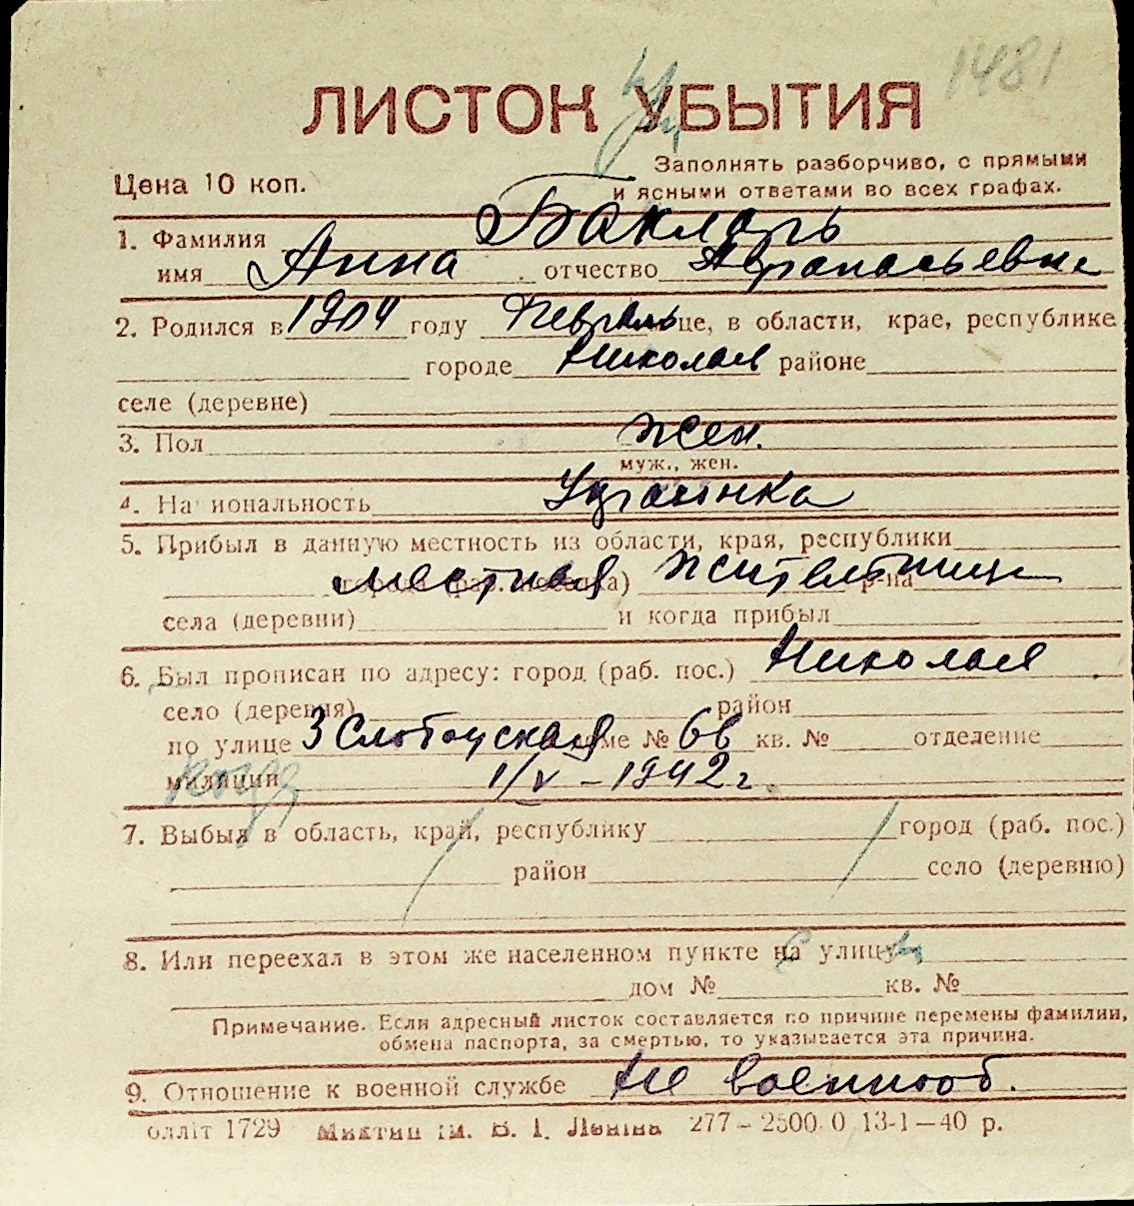 1481
ЛИСТОК УБЫТИЯ
Заполнять разборчиво, с прямыми
Цена 10 коп. и ясными ответами во всех графах.
1. Фамилия Бакларь
имя Анна отчество Афанасьевна
2. Родился в 1904 году Февраль це, в области, крае, республике
городе Николаев районе
селе (деревне)
3. Пол жен.
муж., жен.
4. На иональность Украинка
5. Прибыл в данную местность из области, края, республики
местная жительница р-на
села (деревни) и когда прибыл
6. Был прописан по адресу: город (раб. пос.) Николаев
село (деревня) район
по улице 3 Слободская ме № 66 кв. № отделение
милиции 1/V – 1942 г.
7. Выбыл в область, край, республику город (раб. пос.)
район село (деревню)
8. Или переехал в этом же населенном пункте на улицу
дом № кв. №
Примечание. Если адресный листок составляется по причине перемены фамилии,
обмена паспорта, за смертью, то указывается эта причина.
9. Отношение к военной службе Не военнооб.
олліт 1729 ім. В. І. Леніна 277 – 2500.0 13-1 – 40 р.